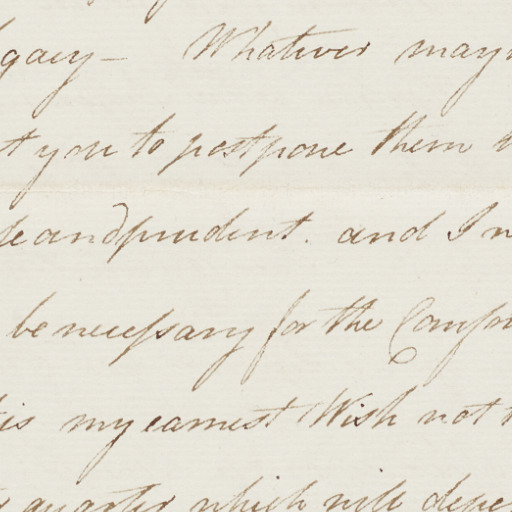 gacy — Whatever may
t you to postpone them
le and prudent. and I
be necessary for the Comfor
is my earnest Wish not
quarter which will depe